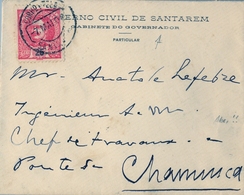 GOVERNO CIVIL DE SANTAREM
GABINETE DO GOVERNADOR
PARTICULAR
25
Mr. Anatole Lefebre
Ingénieur de M.
Chef de travaux
Ponte de
Chamusca